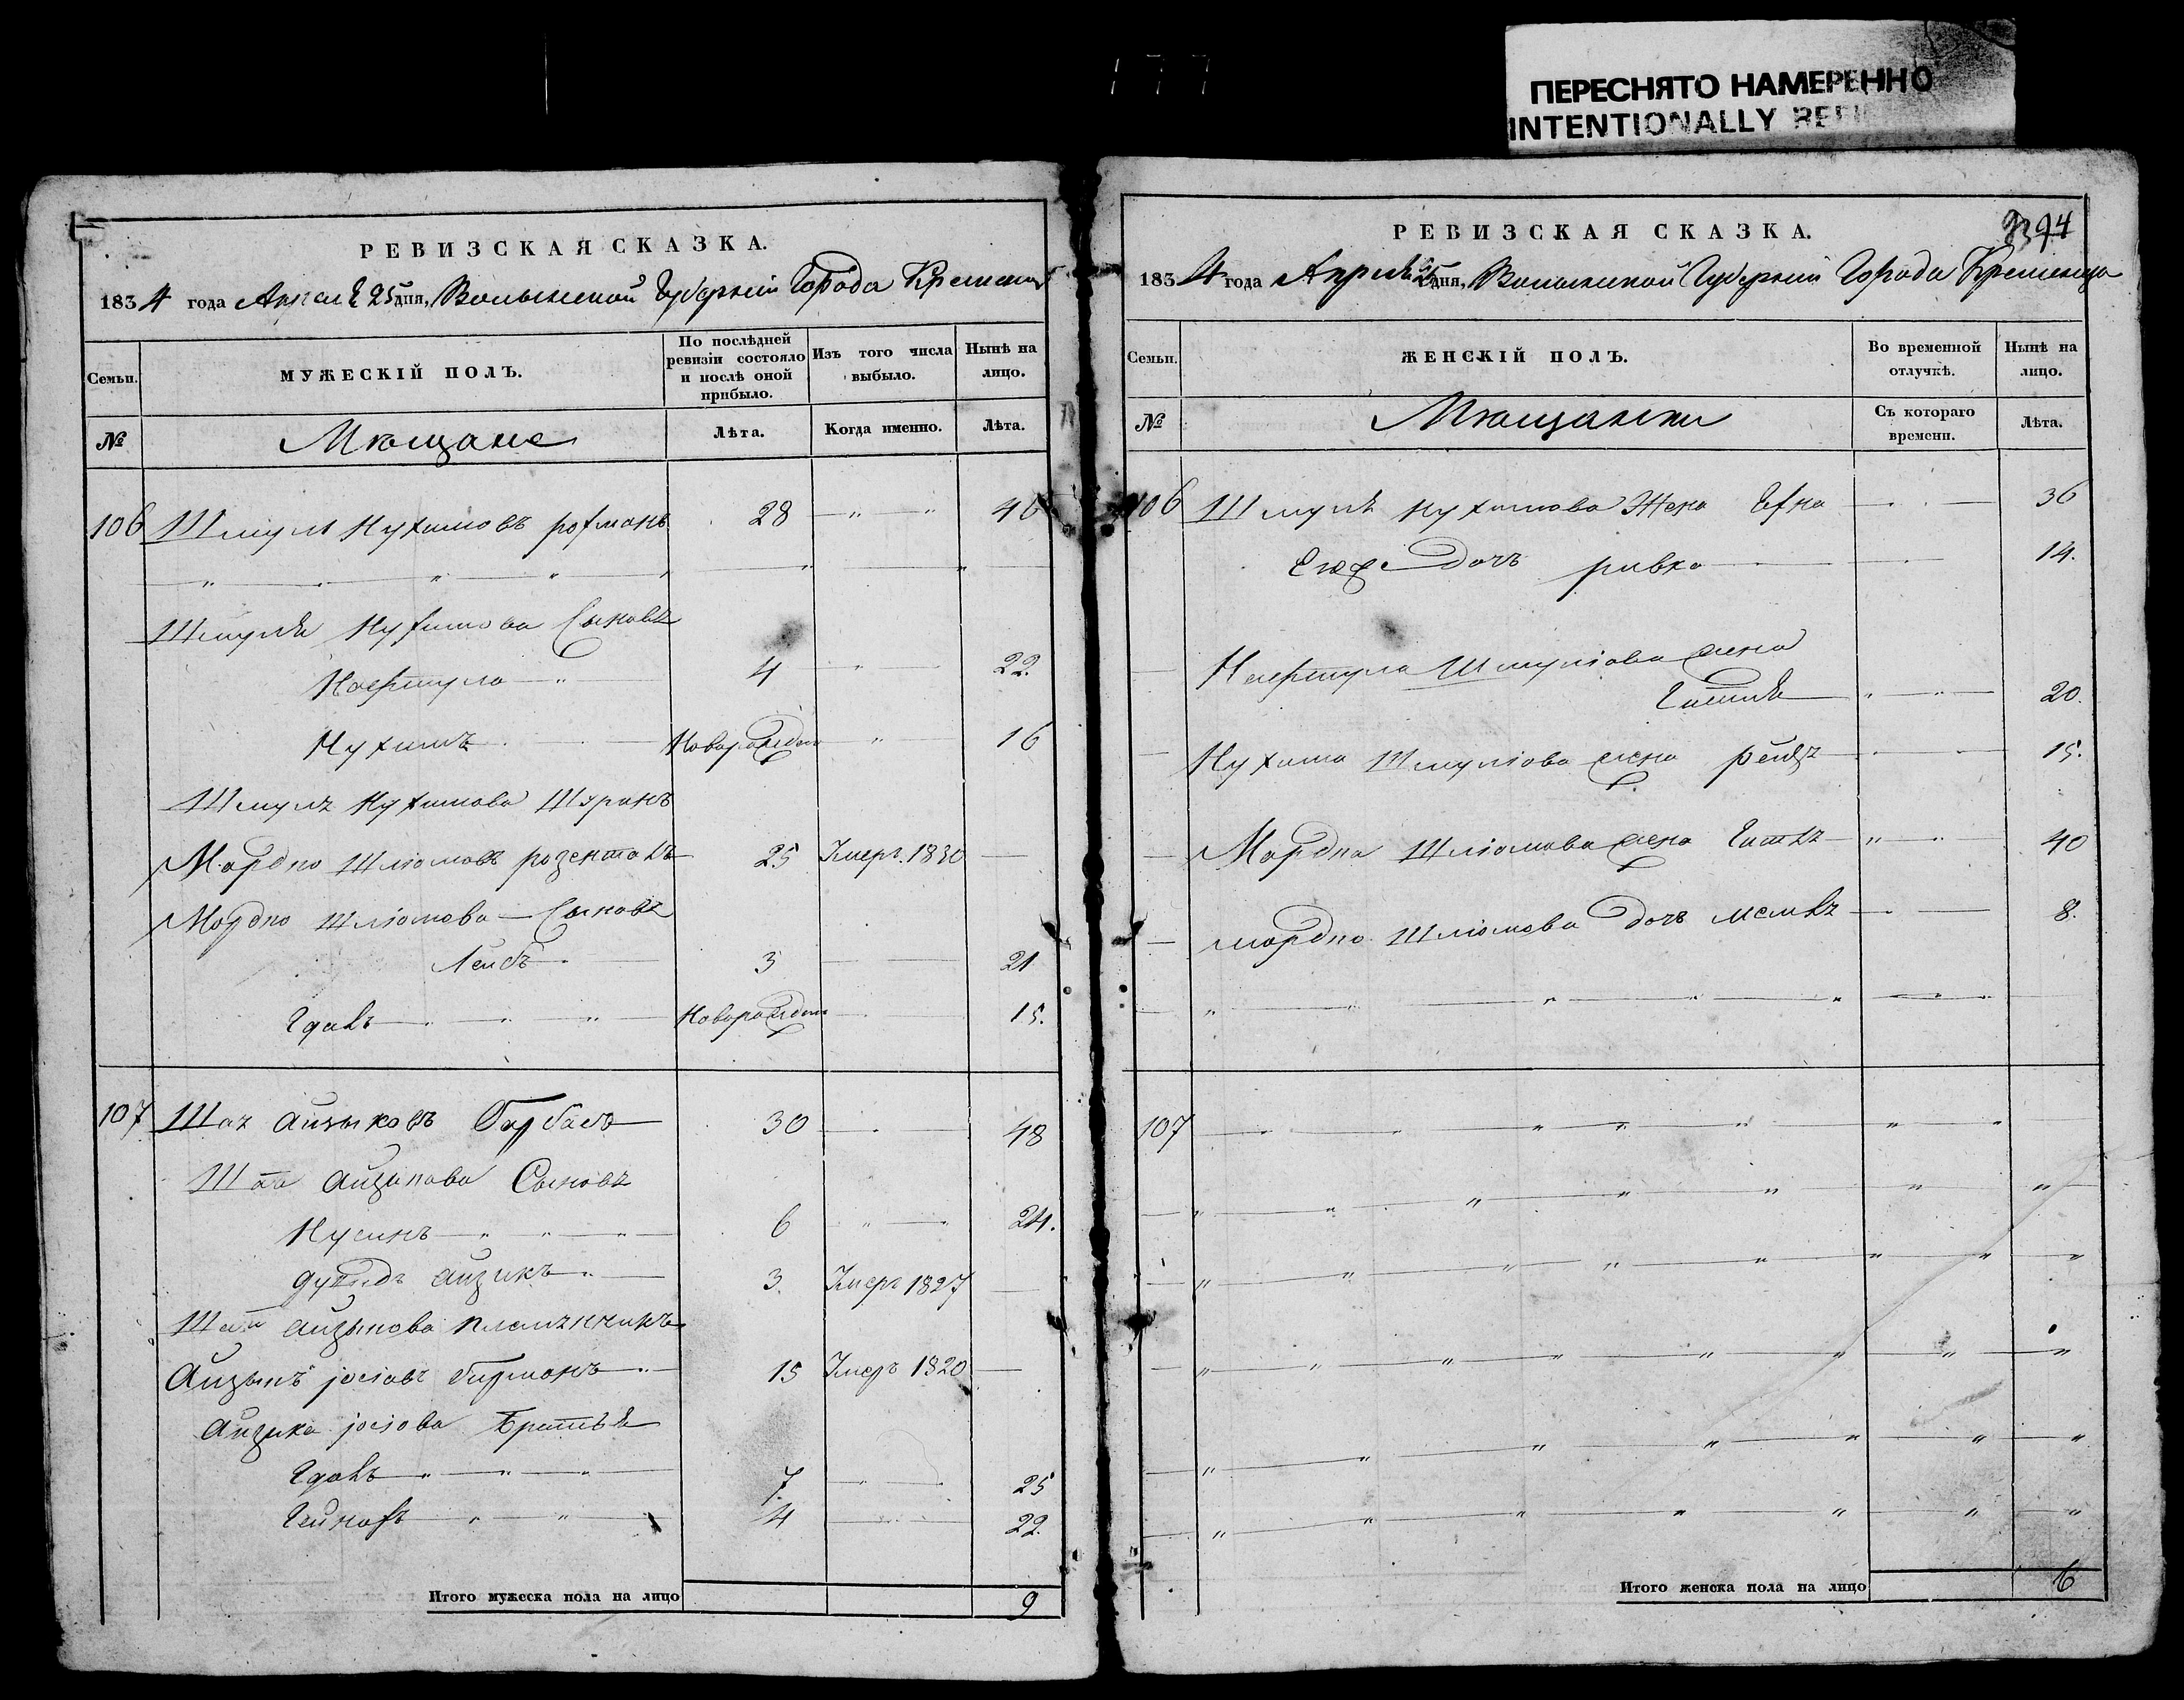 177
ПЕРЕСНЯТО НАМЕРЕННО
INTENTIONALLY
РЕВИЗСКАЯ СКАЗКА.
1834 года Апреля 25 дня, Волынской Губернии Города Кременца
Семьи.
МУЖЕСКІЙ ПОЛЪ.
По послѣдней ревизіи состояло и послѣ оной прибыло.
Изъ того числа выбыло.
Нынѣ на лицо.
№
Мѣщане
Лѣта.
Когда именно.
Лѣта.
106 Шмуль Нухимовъ ротманъ 28 — " " 46
Шмуля Нухимова Сыновя
Нафтула — " 4 22.
Нухимъ Новорожден " 16
Шмуля Нухимова Шуринъ
Мордко Шліомовъ розенталь 25 Умер. 1830 —
Мордко Шліомова — Сыновя
Лейбъ 3 21
Новорожден 15.
107 Айзыковъ 30 48
Айзикова Сыновя
Нусинъ — " " " 6 " 24.
Айзикъ 3. Умеръ 1827
Айзыкова племянникъ
Айзыкъ іосіовъ 15 Умеръ 1820 —
Айзика іосіова Братья
7. 25
4 22.
Итого мужеска пола на лицо 9
РЕВИЗСКАЯ СКАЗКА.
94
1834 года Апреля 25 дня, Волынской Губерніи Города Кременца
Семьи.
ЖЕНСКІЙ ПОЛЪ.
Во временной отлучкѣ.
Нынѣ на лицо.
№
Мѣщанки
Съ котораго времени.
Лѣта.
106 Шмуля Нухимова Жена 36
Дочь ривка 14.
Нафтула Шмуліова жена
Гитля " " 20.
Нухима Шмуліова жена рейзя 15.
Мордка Шліомова жена " 40
мордко Шліомова Дочь 8.
107
Итого женска пола на лицо 6